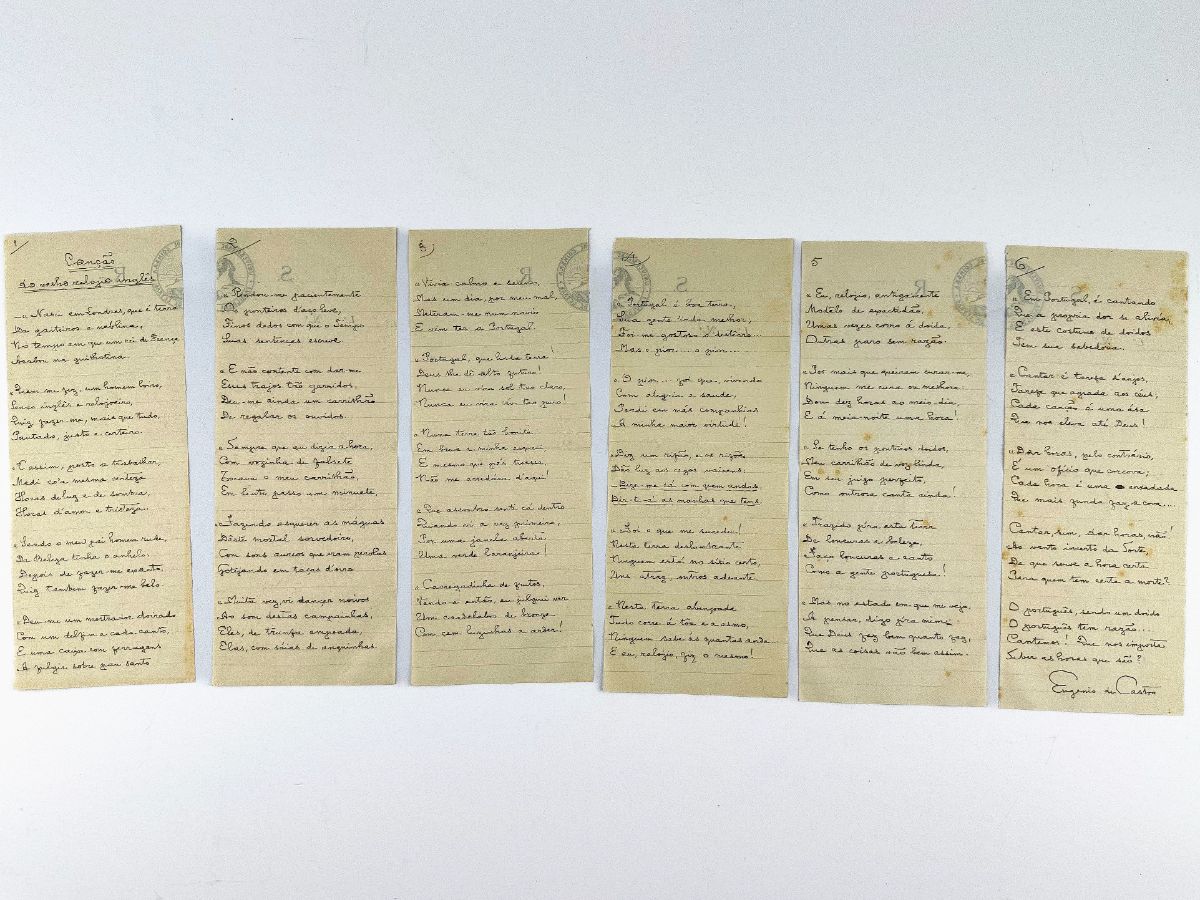 1
Canção
do velho relogio inglês
—« Nasci em Londres, que é terra
De gaiteiros e neblina,
No tempo em que um rei de França
Acabou na guilhotina.
« Quem me fez, um homem loiro,
Sendo inglês e relojoeiro,
Quiz fazer-me, mais que tudo,
Pontado, justo e certeiro.
« E assim, posto a trabalhar,
Medi co'a mesma certeza
Horas de luz e de sombra,
Horas d'amor e tristeza.
« Sendo o meu pai homem rude,
Da Beleza tinha o anhelo:
Depois de fazer-me exacto,
Quiz tambem fazer-me belo
« Deu-me um mostrador dourado
Com um delfin a cada canto,
E uma caixa com ferragens
A fulgir sobre pau santo
2
« Pendou-me pacientemente
Os ponteiros d'aço leve,
Finos dedos com que o Tempo
Suas sentenças escreve.
« E não contente com dar-me
Esses trajos tão garridos,
Deu-me ainda um carrilhão
De regalar os ouvidos.
« Sempre que eu dizia a hora,
Com vozinha de falsete
Tocava o meu carrilhão,
Em lento passo um minuete,
« Fazendo esquecer as máguas
Dêste mortal sorvedoiro,
Com sons aureos que eram perolas
Gotejando em taças d'oiro
« Muita vez vi dançar noivos
Ao som destas campainhas,
Eles, de trunfa empoada,
Elas, com sáias de anquinhas.
3
« Vivia calmo e sereno,
Mas um dia, por meu mal,
Meteram-me num navio
E vim ter a Portugal.
« Portugal, que linda terra!
Deus lhe dê alta ventura!
Nunca eu vira sol tão claro,
Nunca eu vira céu tão puro!
« Numa terra tão bonita
Em breve a minha esqueci,
E mesmo que pés tivesse,
Não me arredava d'aqui!
« Que assombro senti cá dentro
Quando vi a vez primeira,
Por uma janela aberta
Uma verde laranjeira!
« Carregadinha de frutos,
Vendo-a então, eu julguei ver
Um candelabro de bronze
Com cem luzinhas a arder!
4
« Portugal é boa terra,
Sua gente 'inda melhor,
Foi-me gostoso o destêrro...
Mas o pior... o pior...
« O pior... foi que, vivendo
Com alegria e saude,
Perdi em más companhias
A minha maior virtude!
« Diz um rifão, e os rifões
Dão luz aos cegos viventes:
— Dize-me lá com quem andas,
Dir-t'-ei as manhas que tens.
« Foi o que me sucedeu!
Nesta terra deslumbrante
Ninguem está no sitio certo,
Uns atraz, outros adeante.
« Nesta terra abençoada
Tudo corre á tôa e a esmo,
Ninguem sabe ás quantas anda...
E eu, relogio, fiz o mesmo!
5
« Eu, relogio, antigamente
Modelo de exactidão,
Umas vezes corro á doida,
Outras paro sem razão.
« Por mais que queiram curar-me,
Ninguem me cura ou melhora:
Dou dez horas ao meio-dia,
E á meia-noite uma hora!
« Se tenho os ponteiros doidos,
Meu carrilhão de voz linda,
Em seu juizo perfeito,
Como outrora canta ainda!
« Trazido p'ra esta terra
De loucuras e beleza,
Faço loucuras e canto
Como a gente portuguesa!
« Mas no estado em que me vejo,
A pensar, digo p'ra mim:
Que Deus fez bem quanto fez,
Que as coisas vão bem assim.
6
« Em Portugal, é cantando
Que a propria dor se alivia,
E este costume de doidos
Tem sua sabedoria.
« Cantar é tarefa d'anjos,
Tarefa que agrada aos ceus;
Cada canção é uma ása
Que nos eleva até Deus!
« Dar horas, pelo contrário,
É um oficio que encova;
Cada hora é uma enxadada
Que mais funda faz a cova...
Cantar, sim, dar horas, não!
Ao vento incerto da Sorte,
De que serve a hora certa
Para quem tem certa a morte?
O português, sendo um doido
O português tem razão...
Cantemos! Que nos importa
Saber as horas que são?
Eugenio de Castro